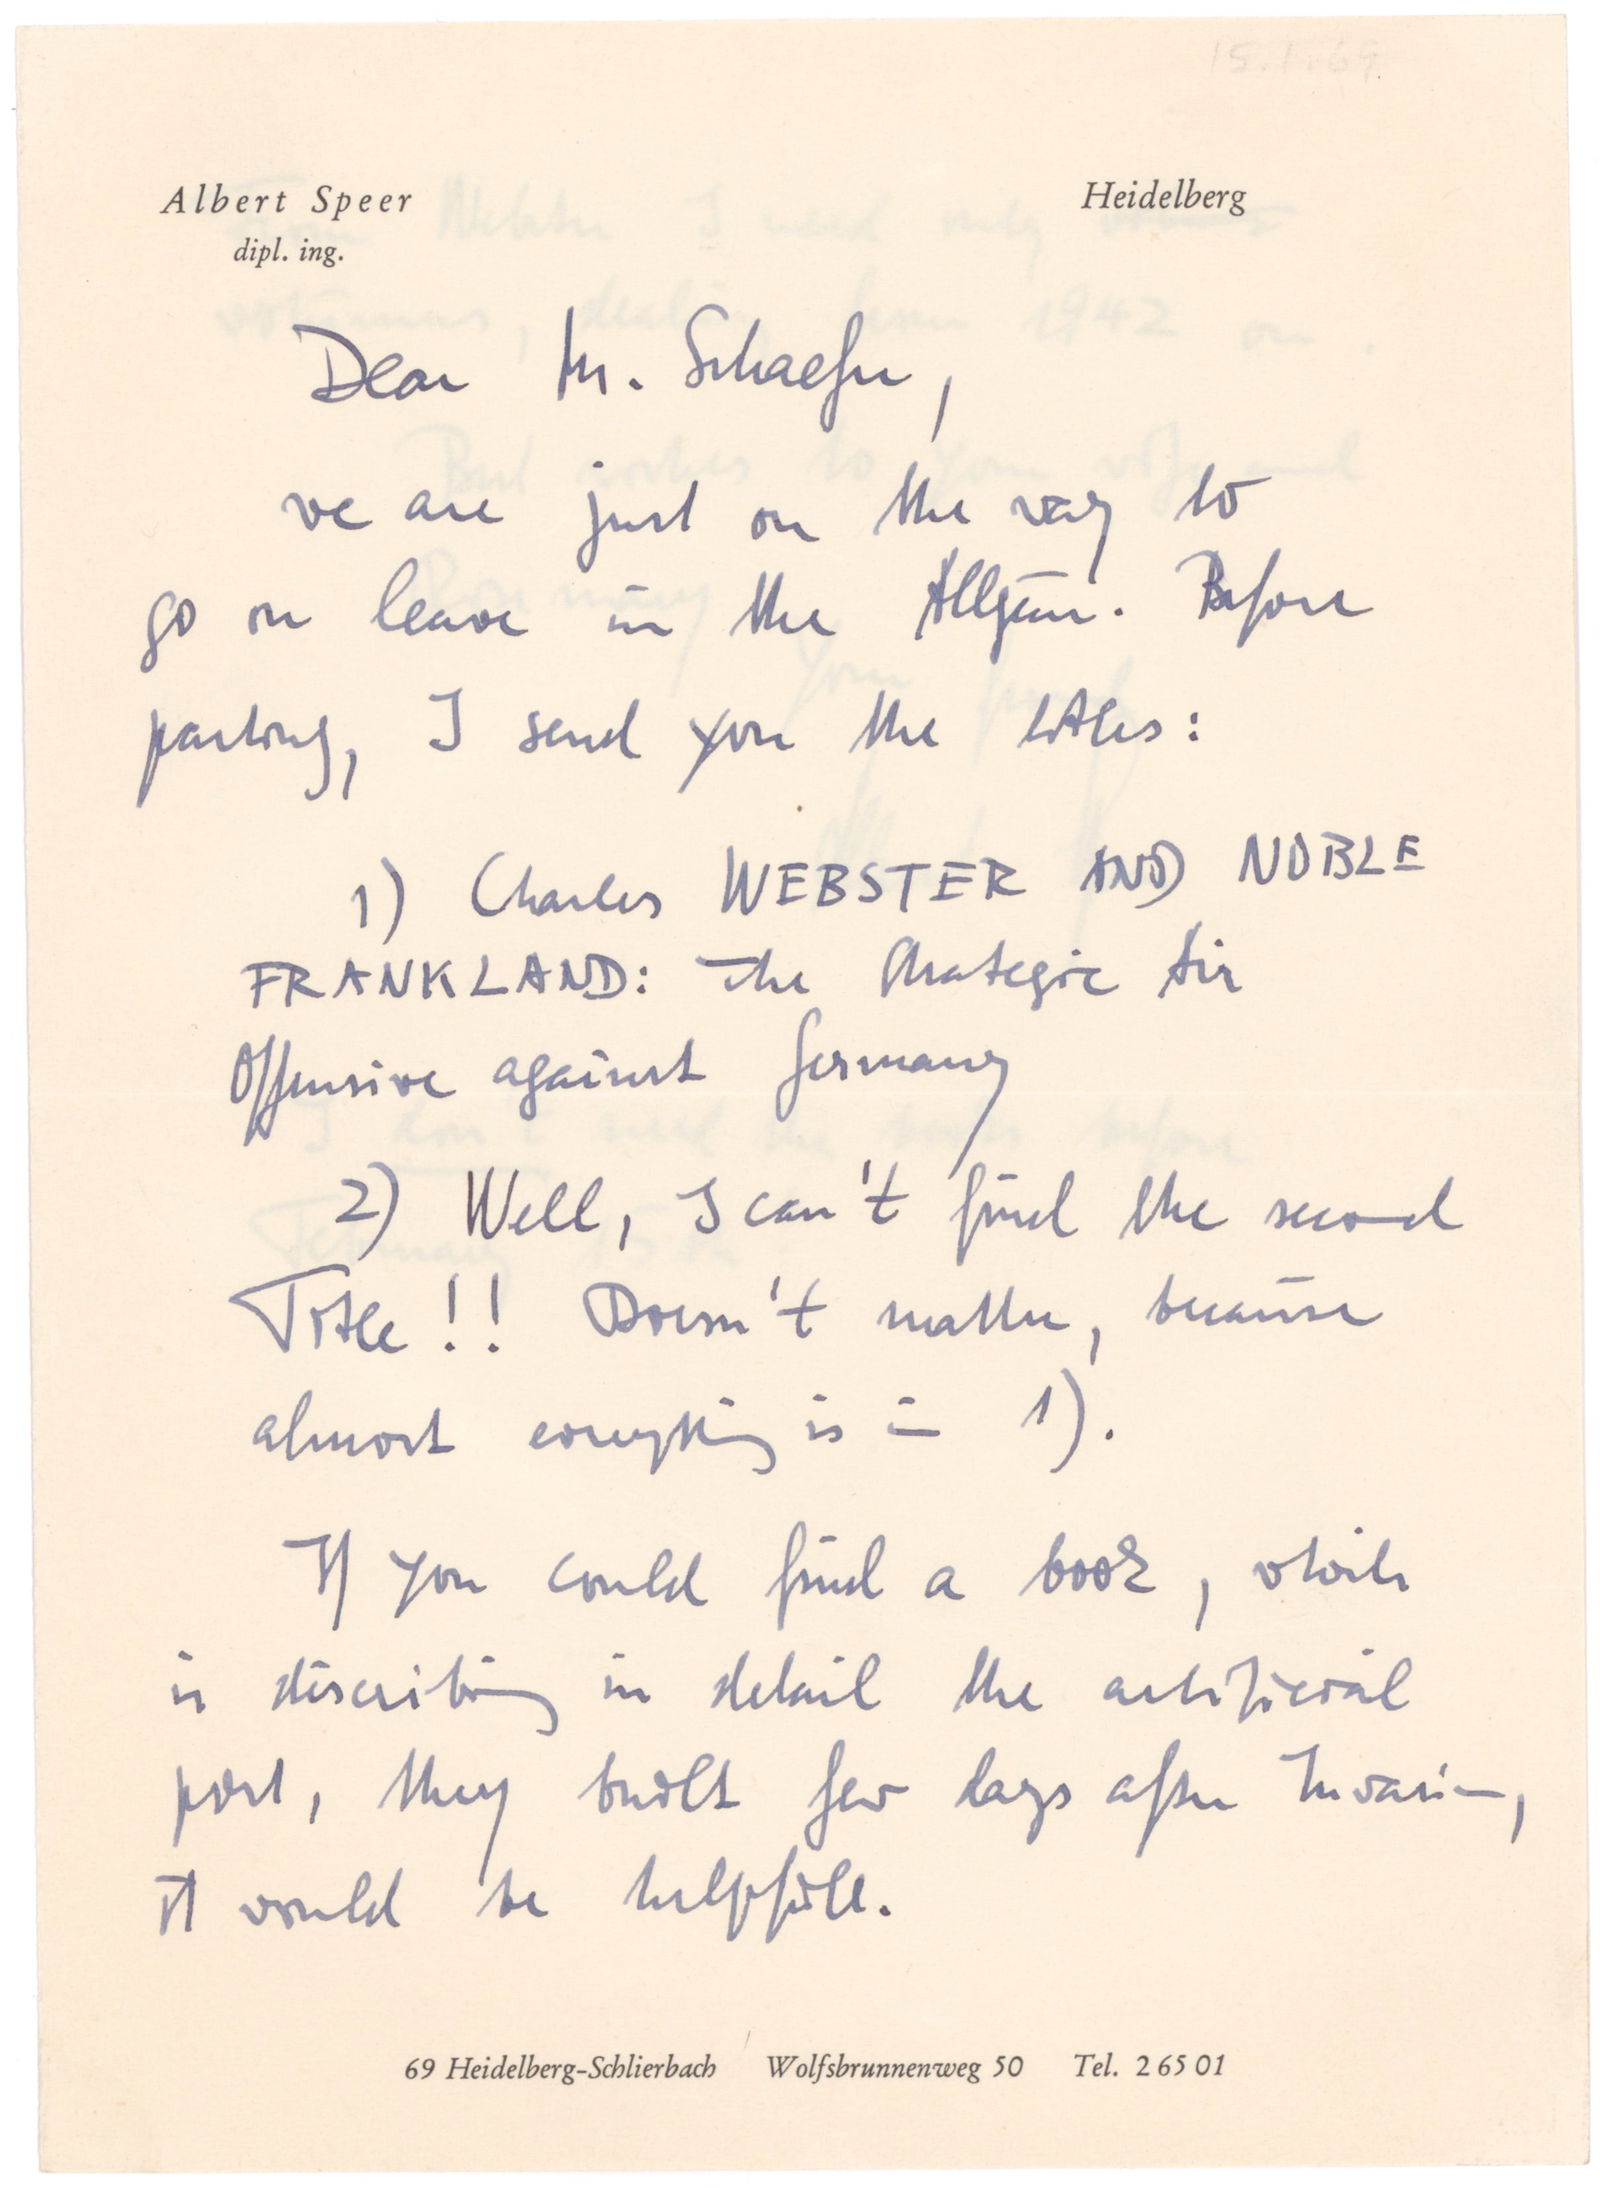 15.1.69
Albert Speer Heidelberg
dipl. ing.
Dear Mr. Schaefer,
we are just on the way to
go on leave in the Allgäu. Before
parting, I send you the titles:
1) Charles WEBSTER AND NOBLE
FRANKLAND: The Strategic Air
Offensive against Germany
2) Well, I can't find the second
Title!! Doesn't matter, because
almost everything is in 1).
If you could find a book, which
is discribing in detail the artificial
port, they built few days after Invasion,
it would be helpfull.
69 Heidelberg-Schlierbach Wolfsbrunnenweg 50 Tel. 2 65 01